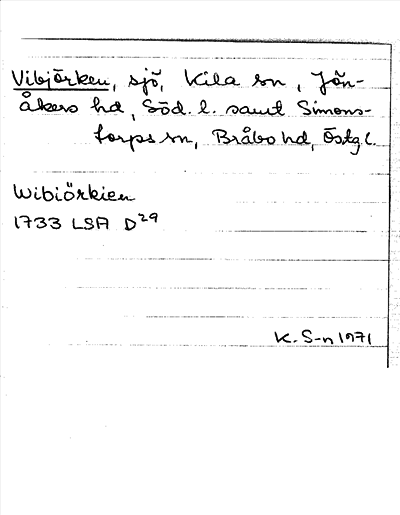 Vibjörken, sjö, Kila sn, Jön-
åkers hd, Söd. l. samt Simons-
torps sn, Bråbo hd, Östg l.
Wibiörkien
1733 LSA D29
K. S-n 1971